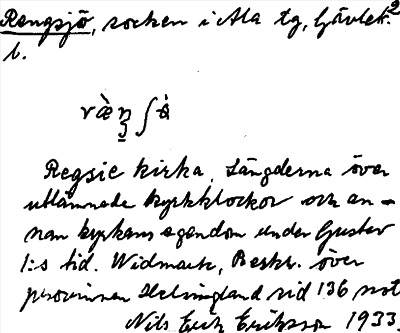 Rengsjö, socken i Ala tg, Gävleb. 2
l.
Regsie kirka. Längderna över
utlämnade kyrkklockor och an-
nan kyrkans egendom under Gustav
I:s tid. Widmark, Beskr. över
provinsen Helsingland sid 136 not
Nils Erik Eriksson 1933.